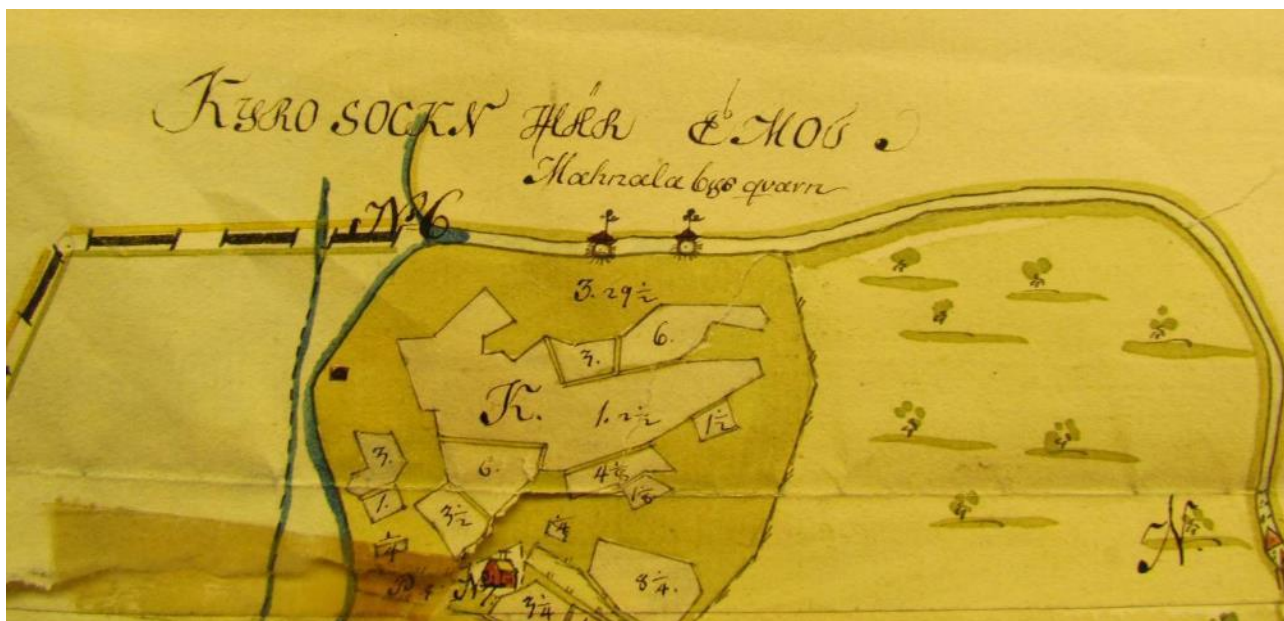 KYRO SOCKN HÄR EMOT.
Mahnala bys quarn
No 6
3. 29 1/2
3. 6.
K. 1. 2 1/2 1 1/2
3. 6. 4 1/2
1. 3 1/2 1 1/8
1/4 1/4 N.
8 1/4.
3 1/4